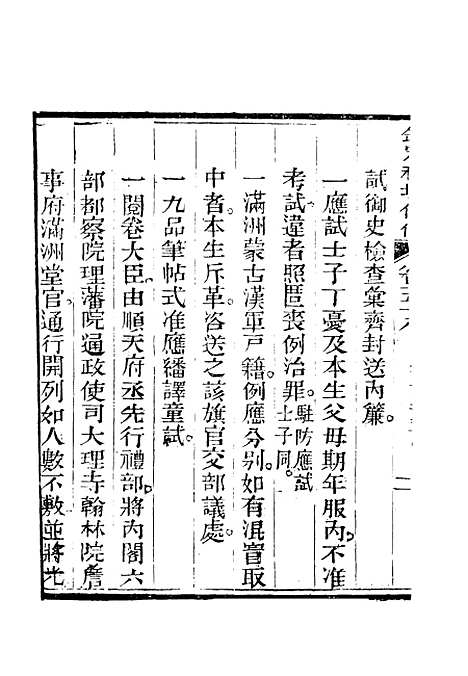 欽定科場條例
卷五十八
二
試御史檢查彙齊封送內簾
一應試士子丁憂及本生父母期年服內不准
考試違者照匿喪例治罪駐防應試士子同
一滿洲蒙古漢軍戶籍例應分別如有混冒取
中者本生斥革咨送之該旗官交部議處
一九品筆帖式准應繙譯童試
一閱卷大臣由順天府丞先行禮部將內閣六
部都察院理藩院通政使司大理寺翰林院詹
事府滿洲堂官通行開列如人數不敷並將光